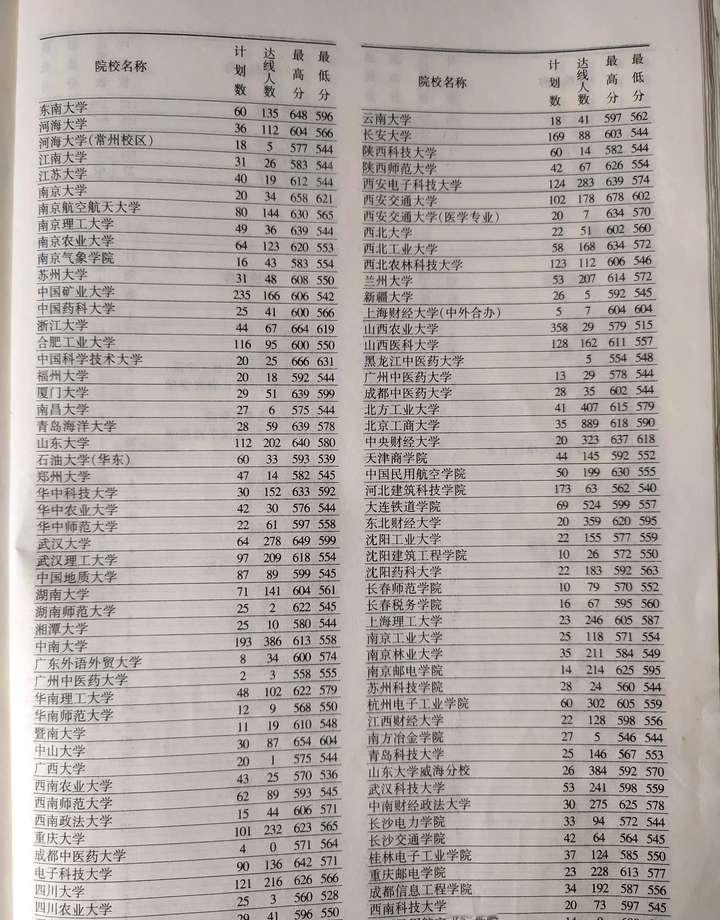 院校名称 计划数 达线人数 最高分 最低分
东南大学 60 135 648 596
河海大学 36 112 604 566
河海大学(常州校区) 18 5 577 544
江南大学 31 26 583 544
江苏大学 40 19 612 544
南京大学 20 34 658 621
南京航空航天大学 80 144 630 565
南京理工大学 49 36 639 544
南京农业大学 64 123 620 553
南京气象学院 16 43 583 554
苏州大学 31 48 608 550
中国矿业大学 235 166 606 542
中国药科大学 25 41 600 566
浙江大学 44 67 664 619
合肥工业大学 116 95 600 550
中国科学技术大学 20 25 666 631
福州大学 20 18 592 544
厦门大学 29 51 639 599
南昌大学 27 6 575 544
青岛海洋大学 28 59 639 578
山东大学 112 202 640 580
石油大学(华东) 60 33 593 539
郑州大学 47 14 582 545
华中科技大学 30 152 633 592
华中农业大学 42 30 576 544
华中师范大学 22 61 597 558
武汉大学 64 278 649 599
武汉理工大学 97 209 618 554
中国地质大学 87 89 599 545
湖南大学 71 141 604 561
湖南师范大学 25 2 622 545
湘潭大学 25 10 580 544
中南大学 193 386 613 558
广东外语外贸大学 8 34 600 574
广州中医药大学 2 3 558 555
华南理工大学 48 102 622 579
华南师范大学 12 9 568 550
暨南大学 11 19 610 548
中山大学 30 87 654 604
广西大学 20 1 575 544
西南农业大学 43 25 570 536
西南师范大学 62 89 593 545
西南政法大学 15 44 606 571
重庆大学 101 232 623 565
成都中医药大学 4 0 571 564
电子科技大学 90 136 642 571
四川大学 121 216 626 566
四川农业大学 25 3 560 528
29 41 596 550
院校名称 计划数 达线人数 最高分 最低分
云南大学 18 41 597 562
长安大学 169 88 603 544
陕西科技大学 60 14 582 544
陕西师范大学 42 67 626 554
西安电子科技大学 124 283 639 574
西安交通大学 102 178 678 602
西安交通大学(医学专业) 20 7 634 570
西北大学 22 51 602 560
西北工业大学 58 168 634 572
西北农林科技大学 123 112 606 546
兰州大学 53 207 614 572
新疆大学 26 5 592 545
上海财经大学(中外合办) 5 7 604 604
山西农业大学 358 29 579 515
山西医科大学 128 162 611 557
黑龙江中医药大学 5 554 548
广州中医药大学 13 29 578 544
成都中医药大学 28 35 602 544
北方工业大学 41 407 615 579
北京工商大学 35 889 618 590
中央财经大学 20 323 637 618
天津商学院 44 145 592 552
中国民用航空学院 50 199 630 555
河北建筑科技学院 173 63 562 540
大连铁道学院 69 524 599 557
东北财经大学 20 359 620 595
沈阳工业大学 22 155 577 559
沈阳建筑工程学院 10 26 572 550
沈阳药科大学 22 183 592 563
长春师范学院 10 79 570 552
长春税务学院 16 67 595 560
上海理工大学 23 246 605 587
南京工业大学 25 118 571 554
南京林业大学 35 211 584 549
南京邮电学院 14 214 625 595
苏州科技学院 28 24 560 544
杭州电子工业学院 60 302 605 559
江西财经大学 22 128 598 556
南方冶金学院 27 5 546 544
青岛科技大学 25 146 567 553
山东大学威海分校 26 384 592 570
武汉科技大学 53 241 598 559
中南财经政法大学 30 275 625 578
长沙电力学院 33 94 572 544
长沙交通学院 42 64 564 545
桂林电子工业学院 37 124 585 550
重庆邮电学院 23 228 613 577
成都信息工程学院 34 192 587 556
西南科技大学 20 73 597 545